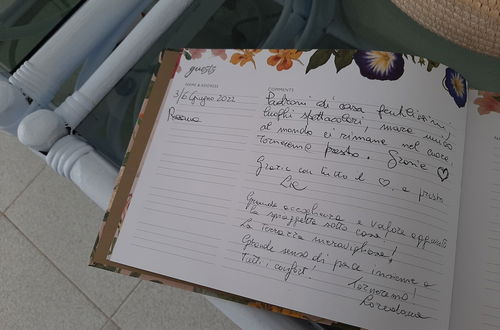 guests
NAME & ADDRESS
COMMENTS
3/6 Giugno 2022
Padroni di casa gentilissimi,
luoghi spettacolari, mare unico
al mondo ci rimane nel cuore.
Torneremo presto. Grazie ♡
Grazie con tutto il ♡, a presto
Grande accoglienza e valore aggiunto
la spiaggetta sotto casa!
La terrazza meravigliosa!
Grande senso di pace insieme a
tutti i confort!
Torneremo!
Loredana